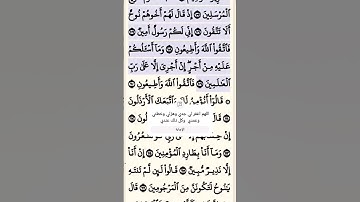 ٱلْمُرْسَلِينَ ۝ إِذْ قَالَ لَهُمْ أَخُوهُمْ نُوحٌ
أَلَا تَتَّقُونَ ۝ إِنِّى لَكُمْ رَسُولٌ أَمِينٌ ۝
فَٱتَّقُوا۟ ٱللَّهَ وَأَطِيعُونِ ۝ وَمَآ أَسْـَٔلُكُمْ
عَلَيْهِ مِنْ أَجْرٍ ۖ إِنْ أَجْرِىَ إِلَّا عَلَىٰ رَبِّ
ٱلْعَـٰلَمِينَ ۝ فَٱتَّقُوا۟ ٱللَّهَ وَأَطِيعُونِ ۝
۞ قَالُوٓا۟ أَنُؤْمِنُ لَكَ وَٱتَّبَعَكَ ٱلْأَرْذَلُونَ
۝ قَالَ
اللهم اغفر لي جدي وهزلي وخطئي
وعمدي وكل ذلك عندي
وَمَآ أَنَا۠ بِطَارِدِ ٱلْمُؤْمِنِينَ ۝ إِنْ أَنَا۠
إِلَّا نَذِيرٌ مُّبِينٌ ۝ قَالُوا۟ لَئِن لَّمْ تَنتَهِ
يَـٰنُوحُ لَتَكُونَنَّ مِنَ ٱلْمَرْجُومِينَ ۝ قَالَ